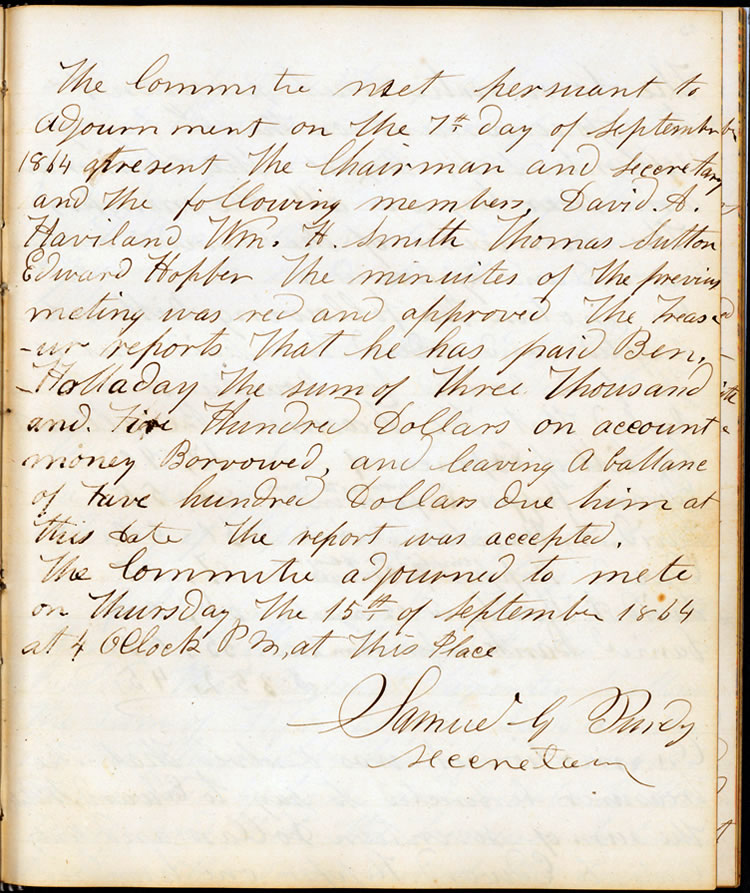 The Committe met persuant to
adjournment on the 7th day of September
1864 present the Chairman and seccretary
and the following members, David. A.
Haviland Wm. H. Smith Thomas Sutton
Edward Hopber The minuites of the previus
meting was red and approved The Treas
-ur reports that he has paid Ben,
-Holladay the sum of Three Thousand
and. Five Hundred Dollars on account
money Borrowed, and leaving A ballane
of five hundred Dollars due him at
this date the report was accepted.
The Committie adjourned to mete
on Thursday the 15th of September 1864
at 4 OClock P M, at this Place
Samuel G Purdy
seccretary